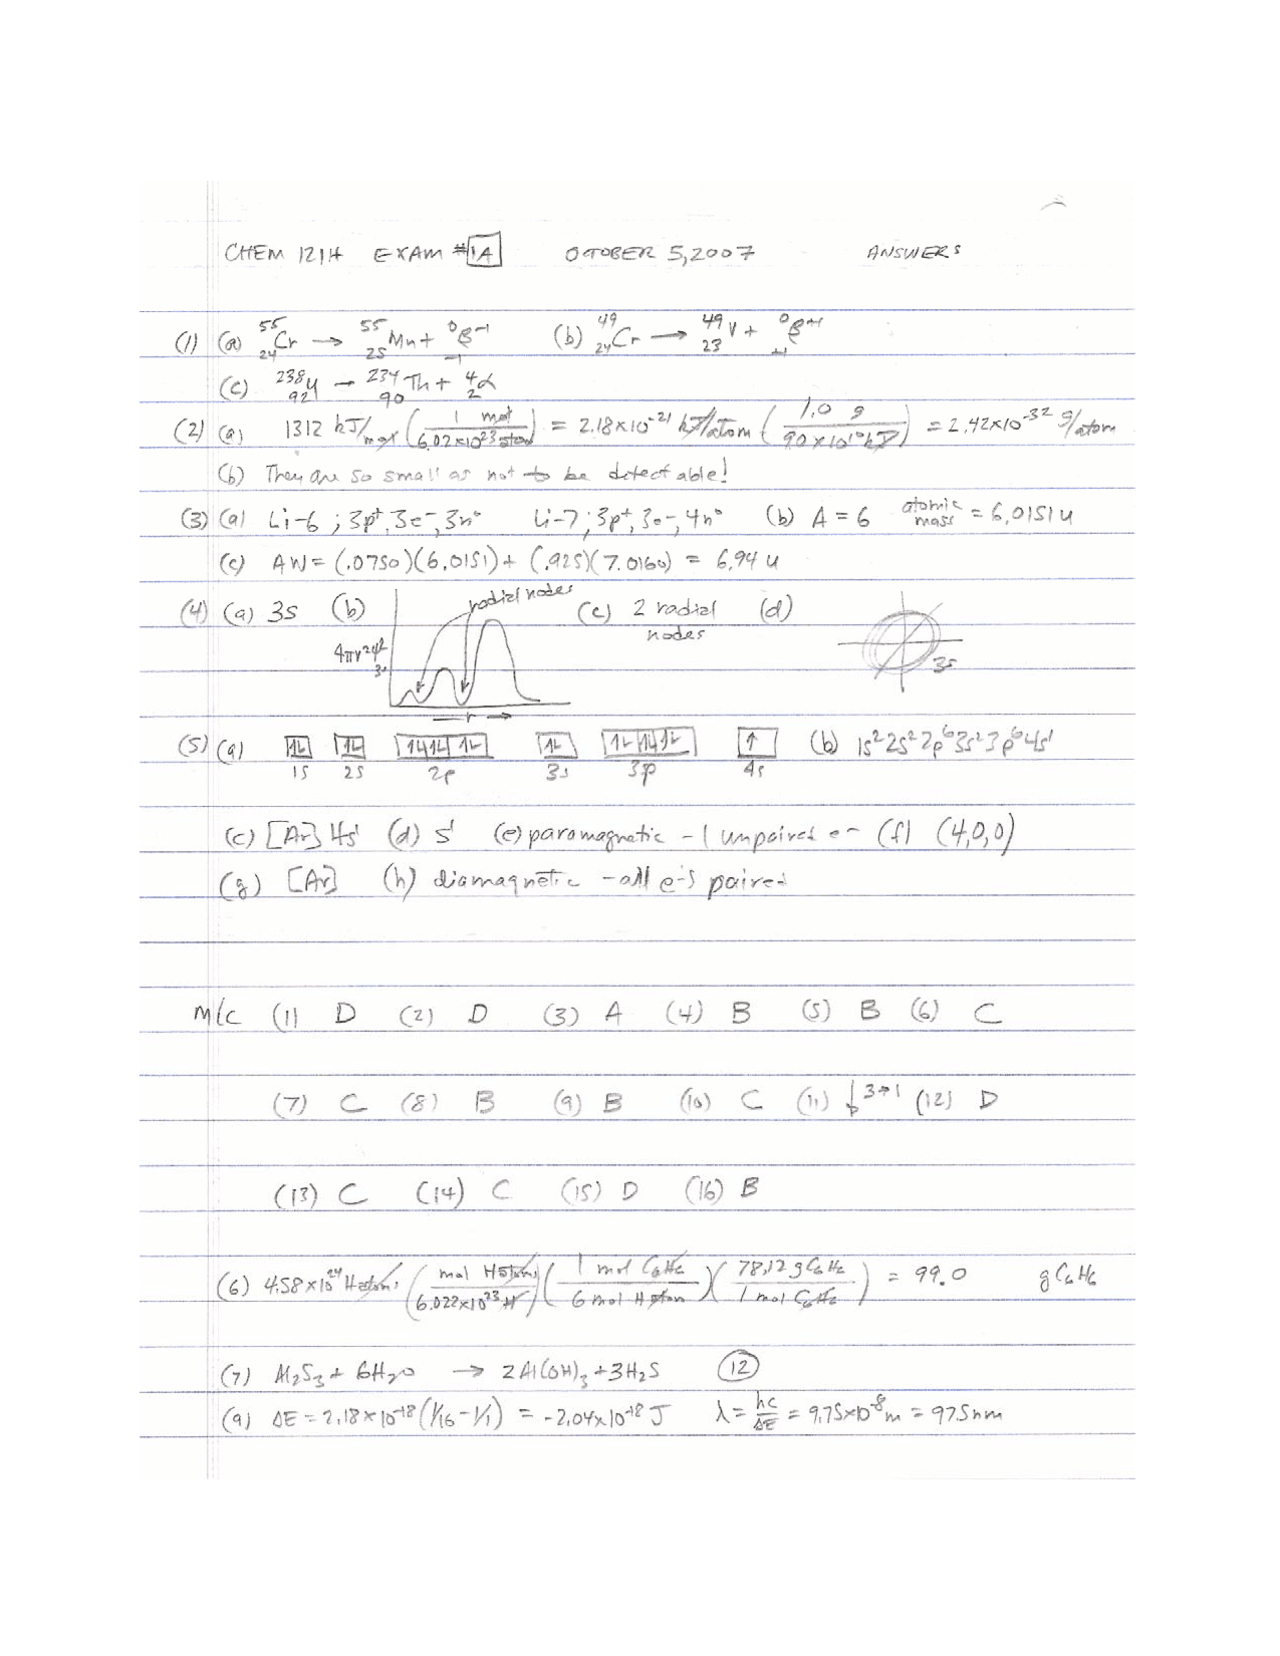 CHEM 121H EXAM #1A OCTOBER 5, 2007 ANSWERS
(1) (a) ⁵⁵₂₄Cr → ⁵⁵₂₅Mn + ⁰₋₁β⁻¹ (b) ⁴⁹₂₄Cr → ⁴⁹₂₃V + ⁰₊₁β⁺¹
(c) ²³⁸₉₂U → ²³⁴₉₀Th + ⁴₂α
(2) (a) 1312 kJ/mol (1 mol / 6.02×10²³ atom) = 2.18×10⁻²¹ kJ/atom (1.0 g / 9.0×10¹⁰ kJ) = 2.42×10⁻³² g/atom
(b) They are so small as not to be detectable!
(3) (a) Li-6 ; 3p⁺, 3e⁻, 3n° Li-7 ; 3p⁺, 3e⁻, 4n° (b) A = 6 atomic mass = 6.0151 u
(c) AW = (.0750)(6.0151) + (.925)(7.0160) = 6.94 u
(4) (a) 3s (b) radial nodes (c) 2 radial nodes (d)
4πr²ψ²
3s
3s
r →
(5) (a) 1s 2s 2p 3s 3p 4s (b) 1s²2s²2p⁶3s²3p⁶4s¹
(c) [Ar] 4s¹ (d) s¹ (e) paramagnetic - 1 unpaired e- (f) (4,0,0)
(g) [Ar] (h) diamagnetic - all e-s paired
M/C (1) D (2) D (3) A (4) B (5) B (6) C
(7) C (8) B (9) B (10) C (11) 3→1 (12) D
(13) C (14) C (15) D (16) B
(6) 4.58×10²⁴ H atoms (mol H atoms / 6.022×10²³ H) (1 mol C₆H₆ / 6 mol H atom) (78.12 g C₆H₆ / 1 mol C₆H₆) = 99.0 g C₆H₆
(7) Al₂S₃ + 6H₂O → 2Al(OH)₃ + 3H₂S 12
(9) ΔE = 2.18×10⁻¹⁸ (1/16 - 1/1) = -2.04×10⁻¹⁸ J λ = hc/ΔE = 9.75×10⁻⁸ m = 97.5 nm